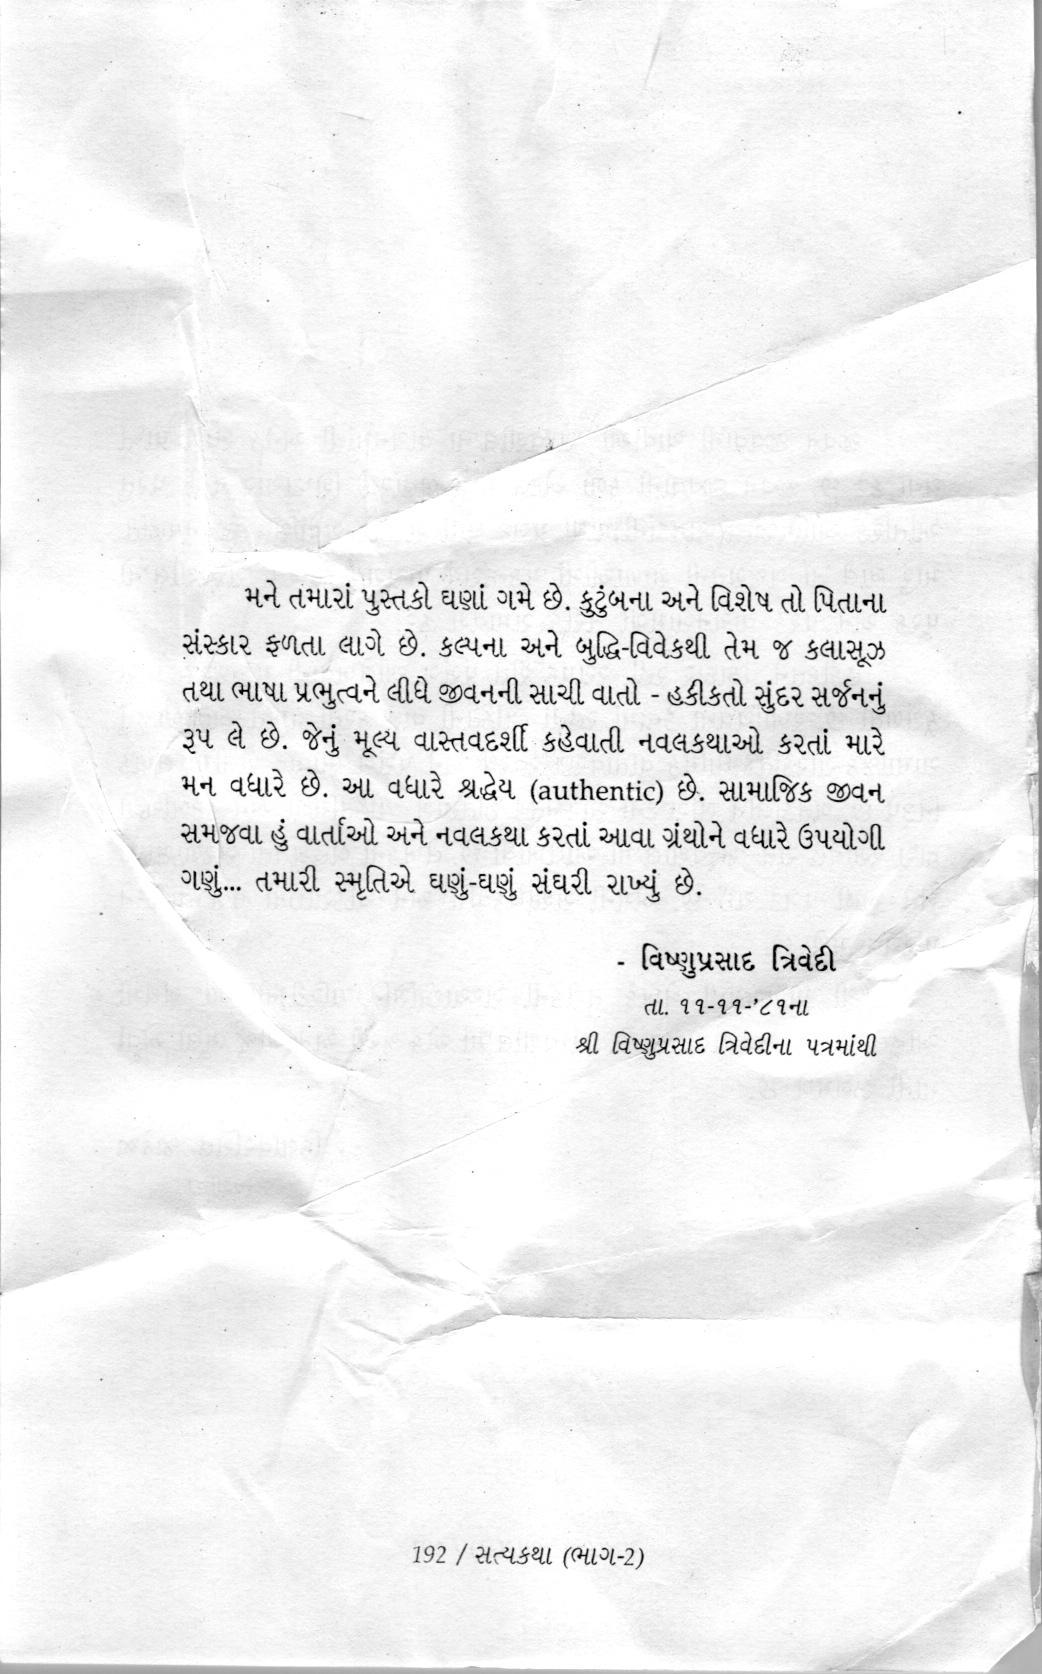 મને તમારાં પુસ્તકો ઘણાં ગમે છે. કુટુંબના અને વિશેષ તો પિતાના
સંસ્કાર ફળતા લાગે છે. કલ્પના અને બુદ્ધિ-વિવેકથી તેમ જ કલાસૂઝ
તથા ભાષા પ્રભુત્વને લીધે જીવનની સાચી વાતો - હકીકતો સુંદર સર્જનનું
રૂપ લે છે. જેનું મૂલ્ય વાસ્તવદર્શી કહેવાતી નવલકથાઓ કરતાં મારે
મન વધારે છે. આ વધારે શ્રદ્ધેય (authentic) છે. સામાજિક જીવન
સમજવા હું વાર્તાઓ અને નવલકથા કરતાં આવા ગ્રંથોને વધારે ઉપયોગી
ગણું... તમારી સ્મૃતિએ ઘણું-ઘણું સંઘરી રાખ્યું છે.
- વિષ્ણુપ્રસાદ ત્રિવેદી
તા. ૧૧-૧૧-'૮૧ના
શ્રી વિષ્ણુપ્રસાદ ત્રિવેદીના પત્રમાંથી
192 / સત્યકથા (ભાગ-2)